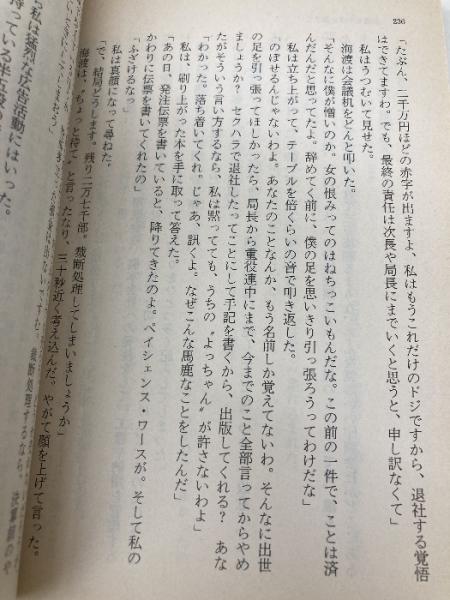 236
「たぶん、二千万円ほどの赤字が出ますよ、私はもうこれだけのドジですから、退社する覚悟
はできてますわ。でも、最終の責任は次長や局長にまでいくと思うと、申し訳なくて」
私はうつむいて見せた。
海渡は会議机をどんと叩いた。
「そんなに僕が憎いのか。女の恨みってのはねちっこいもんだな。この前の一件で、ことは済
んだんだと思ってたよ。辞めてく前に、僕の足を思いきり引っ張ろうってわけだな」
私は立ち上がって、テーブルを倍くらいの音で叩き返した。
「のぼせるんじゃないわよ。あなたのことなんか、もう名前しか覚えてないわ。そんなに出世
の足を引っ張ってほしかったら、局長から重役連中にまで、今までのこと全部言ってからやめ
ましょうか？ セクハラで退社したってことにして手記を書くから、出版してくれる？ あな
たがそういう言い方するなら、私は黙ってても、うちの〝よっちゃん〟が許さないわよ」
「わかった。落ち着いてくれ。じゃあ、訊くよ。なぜこんな馬鹿なことをしたんだ」
私は、刷り上がった本を手に取って答えた。
「あの日、発注伝票を書いていると、降りてきたのよ。ペイシェンス・ワースが。そして私の
かわりに伝票を書いてくれたの」
「ふざけるなっ」
私は真顔になって尋ねた。
「で、結局どうします。残り二万七千部。裁断処理してしまいましょうか」
海渡は、「ちょっと待て」と言ったなり、三十秒近く考え込んだ。やがて顔を上げて言った。
裁断処理するなら、決算期のや
私は猛烈な広告活動にはいった。